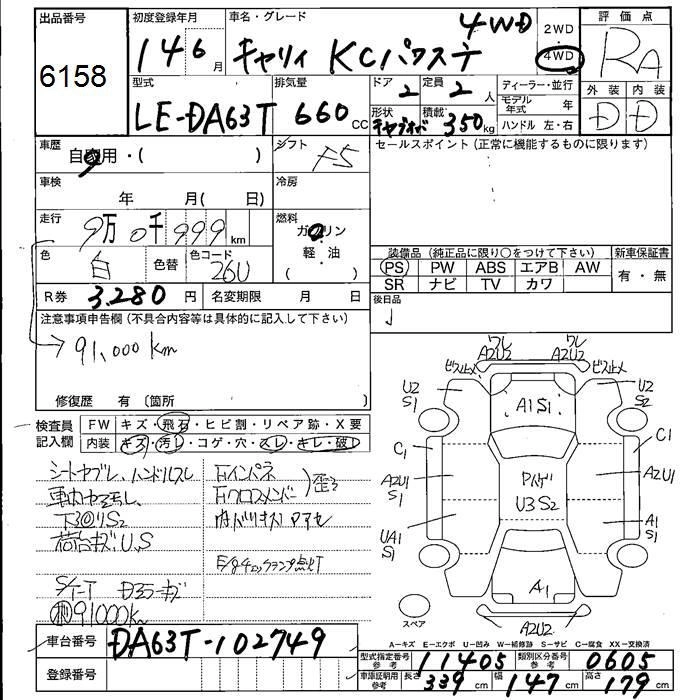 出品番号
6158
初度登録年月
14 6 月
車名・グレード
キャリィ KCパワステ 4WD
2WD
4WD
評価点
RA
型式
LE-DA63T
排気量
660 CC
ドア 2
定員 2 人
ディーラー・並行
モデル年式 年
ハンドル 左・右
形状
積載 350 kg
外装 内装
D D
車歴
自家用・( )
シフト F5
セールスポイント(正常に機能するものに限ります)
車検
年 月( 日)
冷房
走行
9万 0千 999 km
燃料
ガソリン
軽・油
( )
色 白
色替
色コード 26U
装備品(純正品に限り○をつけて下さい)
新車保証書
PS PW ABS エアB AW
SR ナビ TV カワ
有・無
R券 3,280 円
名変期限 月 日
後日品
注意事項申告欄(不具合内容等は具体的に記入して下さい)
→ 91,000 km
修復歴 有 〔箇所 〕
検査員記入欄
FW キズ・飛石・ヒビ割・リペア跡・X要
内装 キズ・汚レ・コゲ・穴・スレ・キレ・破レ
シートヤブレ、ハンドルスレ
下回りS2
荷台キズU,S
Fインパネ
Fクロスメンバー
歪み
E/gチェックランプ点灯
91000km
ワレ A2U2
ワレ A2U2
ビス止メ
ビス止メ
U2 S1
A1S1
U2 S2
C1
C1
A2U1 S1
U3S2
A2U1
UA1 S1
A1 S1
A1
スペア
A2U2
A−キズ E−エクボ U−凹み W−補修跡 S−サビ C−腐食 XX−交換済
車台番号 DA63T-102749
登録番号
型式指定番号 参考 11405
類別区分番号 参考 0605
車庫証明用 参考 長さ 339 cm 幅 147 cm 高さ 179 cm